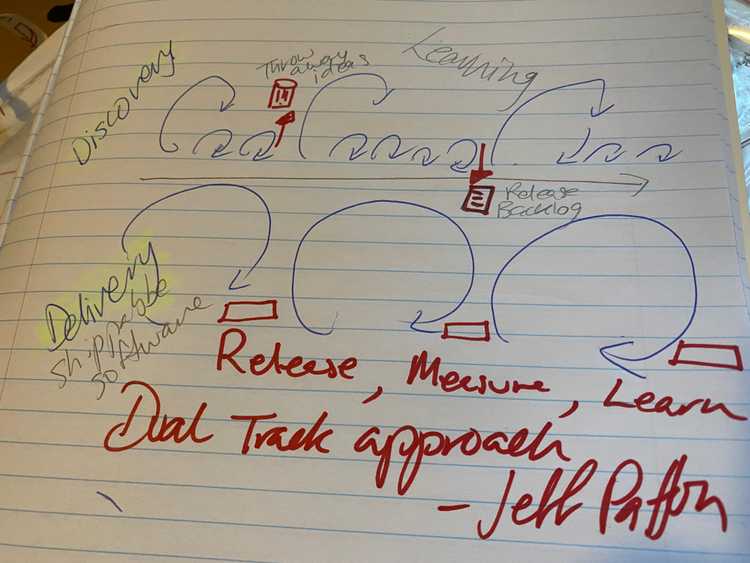 Discovery
Throw
away
ideas
Learning
Release
Backlog
Delivery
shippable
software
Release, Measure, Learn
Dual Track approach
- Jeff Patton